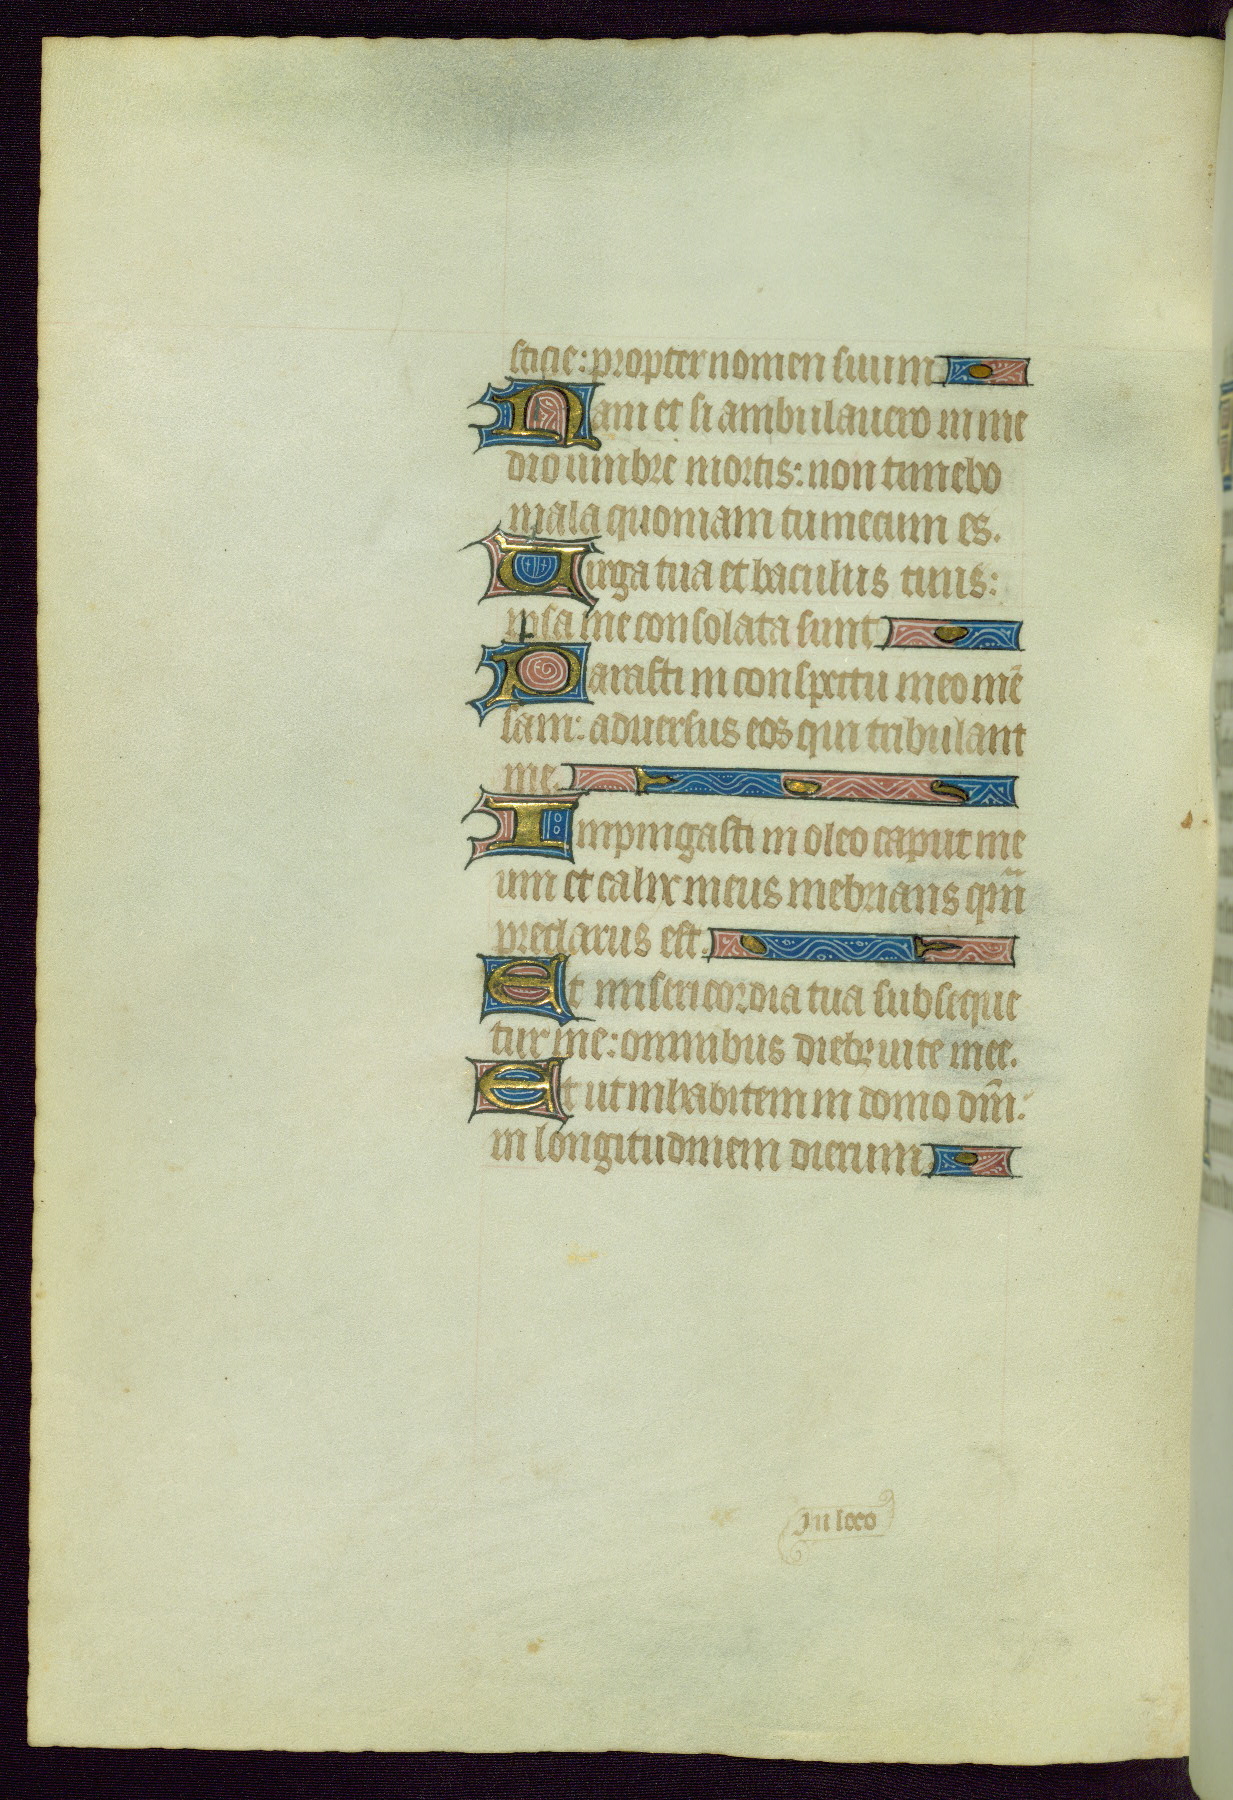 sticie: propter nomen suum
Nam et si ambulavero in me
dio umbre mortis: non timebo
mala quoniam tu mecum es.
Uirga tua et baculus tuus:
ipsa me consolata sunt
Parasti in conspectu meo mē
sam: adversus eos qui tribulant
me.
Impingasti in oleo caput me
um et calix meus inebrians qm̄
preclarus est.
Et misericordia tua subseque
tur me: omnibus dieb; uite mee.
Et ut inhabitem in domo dm̄i:
in longitudinem dierum
In loco